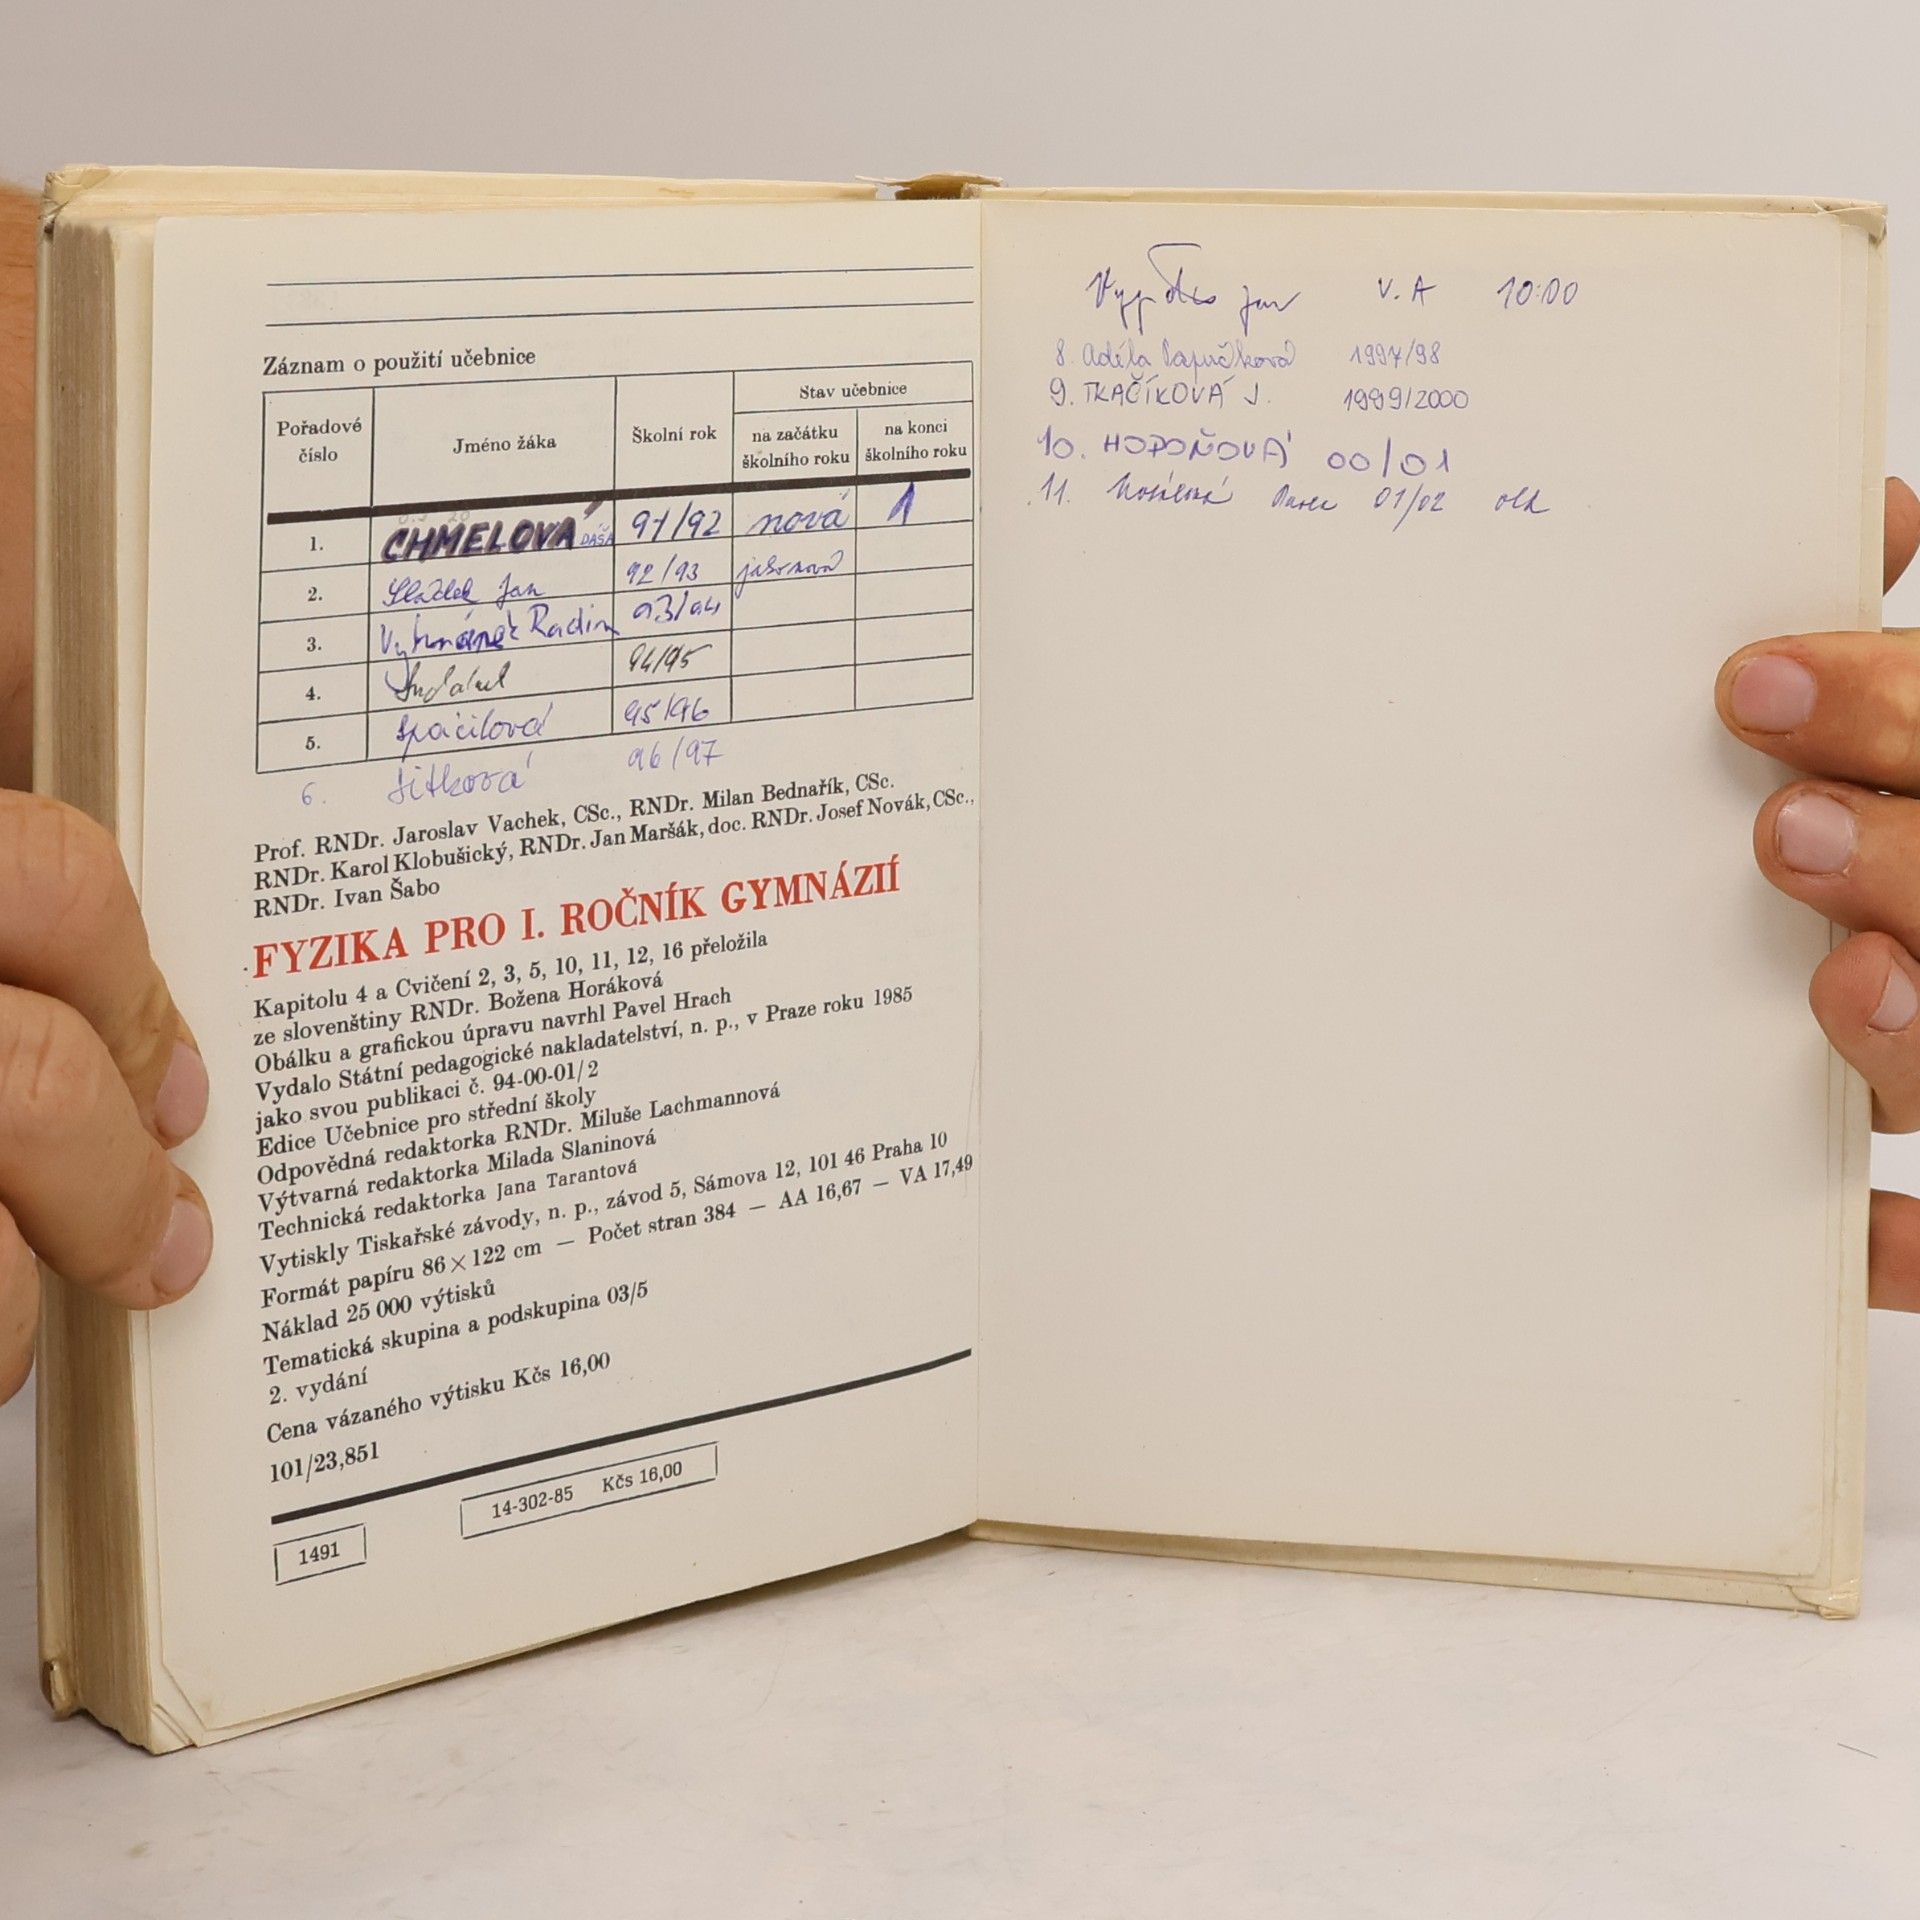 Záznam o použití učebnice
Pořadové číslo
Jméno žáka
Školní rok
Stav učebnice
na začátku školního roku
na konci školního roku
1. CHMELOVÁ DÁŠA 91/92 nová 1
2. Sládek Jan 92/93 jakonová
3. Radim 93/94
4. 94/95
5. Spáčilová 95/96
6. Jitková 96/97
Prof. RNDr. Jaroslav Vachek, CSc., RNDr. Milan Bednařík, CSc.
RNDr. Karol Klobušický, RNDr. Jan Maršák, doc. RNDr. Josef Novák, CSc.,
RNDr. Ivan Šabo
FYZIKA PRO I. ROČNÍK GYMNÁZIÍ
Kapitolu 4 a Cvičení 2, 3, 5, 10, 11, 12, 16 přeložila
ze slovenštiny RNDr. Božena Horáková
Obálku a grafickou úpravu navrhl Pavel Hrach
Vydalo Státní pedagogické nakladatelství, n. p., v Praze roku 1985
jako svou publikaci č. 94-00-01/2
Edice Učebnice pro střední školy
Odpovědná redaktorka RNDr. Miluše Lachmannová
Výtvarná redaktorka Milada Slaninová
Technická redaktorka Jana Tarantová
Vytiskly Tiskařské závody, n. p., závod 5, Sámova 12, 101 46 Praha 10
Formát papíru 86×122 cm — Počet stran 384 — AA 16,67 — VA 17,49
Náklad 25 000 výtisků
Tematická skupina a podskupina 03/5
2. vydání
Cena vázaného výtisku Kčs 16,00
101/23,851
14-302-85 Kčs 16,00
1491
Jan V. A 10:00
8. Adéla 1997/98
9. TKAČÍKOVÁ J. 1999/2000
10. HODOŇOVÁ 00/01
11. 01/02